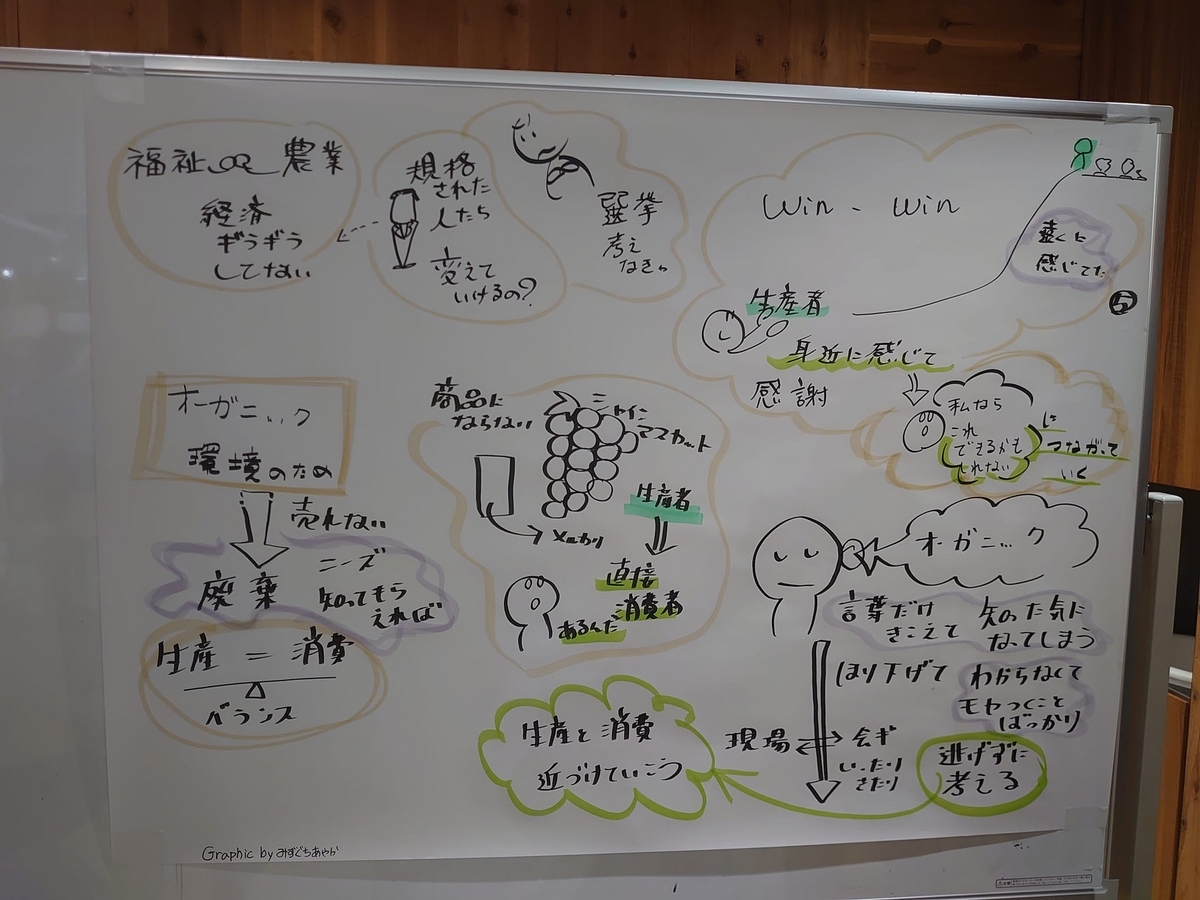 福祉 農業
経済
ギラギラ
してない
規格
された
人たち
変えて
いけるの?
選挙
考え
なきゃ
Win - Win
遠くに
感じてた
⑤
生産者
身近に感じて
感謝
私なら
これ
できるかも
しれない
に
つながって
いく
オーガニック
環境のため
売れない
廃棄
ニーズ
知ってもら
えれば
生産 = 消費
バランス
商品に
ならない
マスカット
メルカリ
生産者
直接
消費者
あるんだ
オーガニック
言葉だけ
きこえて
知った気に
なってしまう
ほり下げて
わからなくて
モヤっくこと
ばっかり
現場
会ギ
いったり
きたり
逃げずに
考える
生産と消費
近づけていこう
Graphic by みずぐちあやか